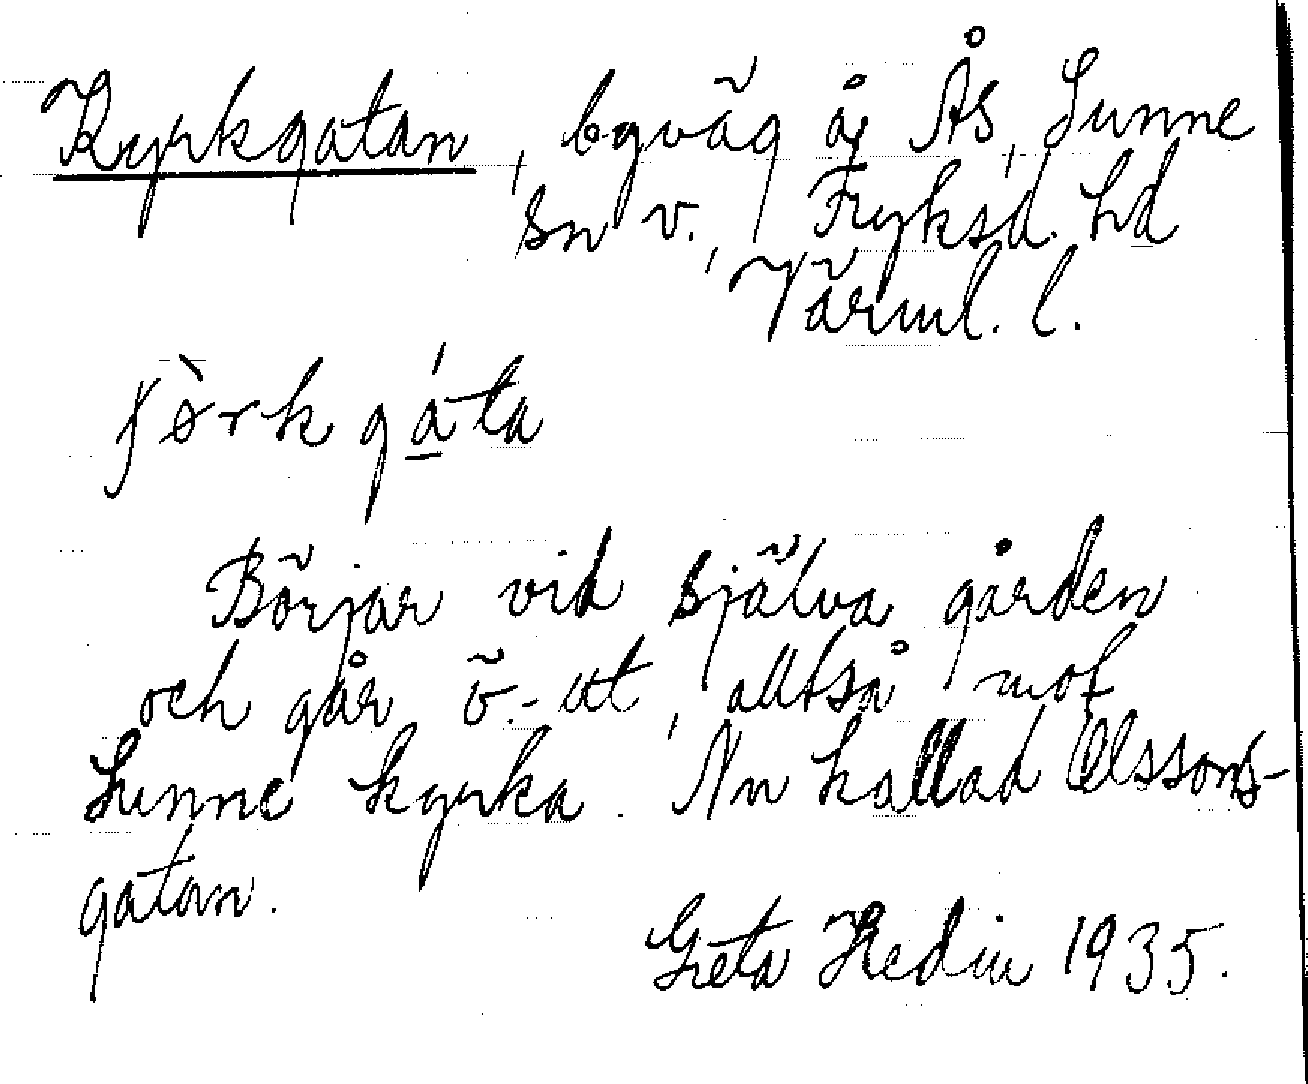 Kyrkgatan, bgväg å Ås, Sunne
sn v., Fryksd. hd
Värml. l.
görkgáta
Börjar vid själva gården
och går ö.-ut, alltså mot
Sunne kyrka. Nu kallad Olssons-
gatan.
Greta Hedin 1935.